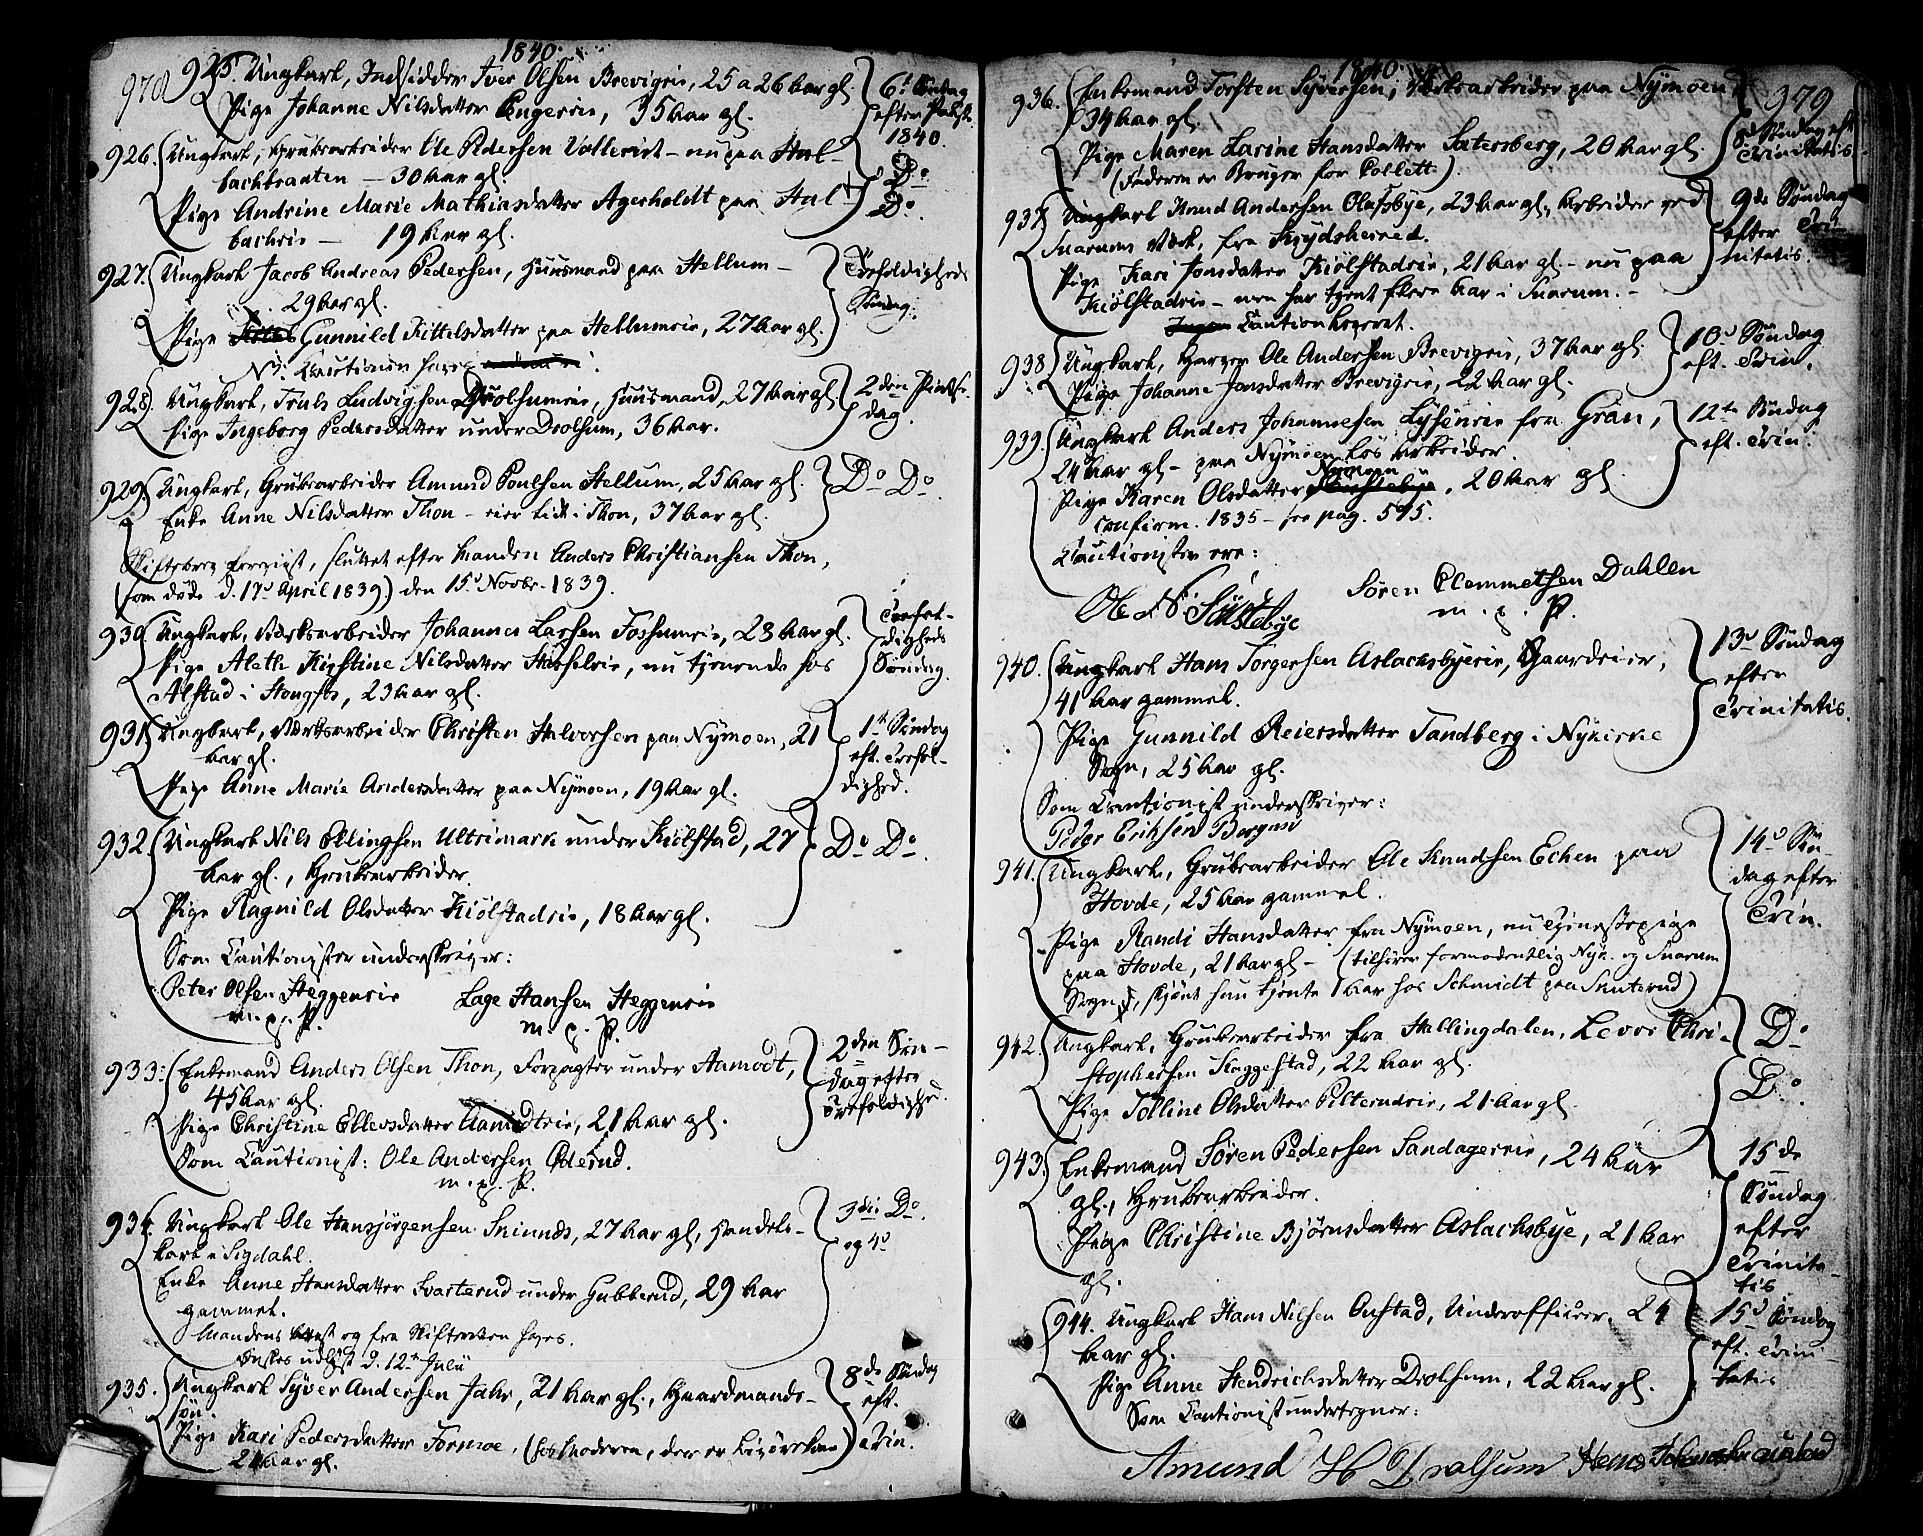 1840.
978
925. Ungkarl, Indsidder Iver Olsen Brevigeie, 25 a 26 Aar gl.
Pige Johanne Nilsdatter Engereie, 35 Aar gl.
6te Søndag
efter Paaske
1840.
926. Ungkarl, Grubearbeider Ole Pedersen Vollerist - nu paa Hal-
bachbraaten - 30 Aar gl.
Pige Andrine Marie Mathiasdatter Agerholdt paa Hal-
bacheie - 19 Aar gl.
Do
Do.
927. Ungkarl Jacob Andreas Pedersen, Huusmand paa Hellum -
29 Aar gl.
Pige Gunnild Kittelsdatter paa Hellumeie, 27 Aar gl.
NB. Cautionen haves
Trefoldigheds
Søndag.
928. Ungkarl, Truls Ludvigsen Drolsumeie, Huusmand, 27 Aar gl.
Pige Ingeborg Pedersdatter under Drolsum, 36 Aar.
2den Pintse-
dag.
929. Ungkarl, Grubearbeider Amund Poulsen Hellum, 25 Aar gl.
Enke Anne Nilsdatter Thon - eier lidt i Thon, 37 Aar gl.
Skiftebrev foreviist, sluttet efter Manden Anders Christiansen Thon,
(som døde d. 17de April 1839) den 15de Novbr. 1839.
Do Do.
930. Ungkarl, Værksarbeider Johannes Larsen Fossumeie, 28 Aar gl.
Pige Aleth Kirstine Nilsdatter Hasseleie, nu tjenende hos
Alstad i Hougfos, 23 Aar gl.
Trefol-
digheds
Søndag.
931. Ungkarl, Værksarbeider Christen Halvorsen paa Nymoen, 21
Aar gl.
Pige Anne Marie Andersdatter paa Nymoen, 19 Aar gl.
1ste Søndag
eft. Trefol-
dighed.
932. Ungkarl Nils Ellingsen Ultrimark under Kiølstad, 27
Aar gl., Grubearbeider.
Pige Ragnild Olsdatter Kiølstadeie, 18 Aar gl.
Som Cautionister underskriver:
Peter Olsen Heggeneie Lage Hansen Heggeneie
m. p. P. m. p. P.
Do Do.
933. Enkemand Anders Olsen Thon, Forpagter under Aamodt,
45 Aar gl.
Pige Christine Ellevsdatter Aamodteie, 21 Aar gl.
Som Cautionist: Ole Andersen Øderud.
m. p. P.
2den Søn-
dag efter
Trefoldighed.
934. Ungkarl Ole Hansjørgensen Skinnes, 27 Aar gl., Handels-
karl i Sigdahl.
Enke Anne Hansdatter Svarterud under Gubberud, 29 Aar
gammel.
Mandens Attest og fra Skifteretten haves.
Ønskes udlyst d. 12te Julii
3die Do.
og 4de
935. Ungkarl Syver Andersen Jahr, 21 Aar gl., Gaardmands-
søn.
Pige Kari Pedersdatter Formoe, (hos Moderen, der er
21 Aar gl.
8de Søndag
eft.
Trin.
1840.
979
936. Enkemand Torsten Syversen, Værksarbeider paa Nymoen,
34 Aar gl.
Pige Maren Larine Hansdatter Sætersberg, 20 Aar gl.
(Faderen er Bruger for Collett).
Søndag eft.
Trinitatis.
937. Ungkarl Knud Andersen Olafsbye, 23 Aar gl., Arbeider ved
Snarums Værk, fra Krydsherred.
Pige Kari Jonsdatter Kiølstadeie, 21 Aar gl - nu paa
Kiølstadeie - men har tjent flere Aar i Snarum. -
Caution leveret.
9de Søndag
efter Tri-
nitatis.
938. Ungkarl, Ole Andersen Brevigeie, 37 Aar gl.
Pige Johanne Jonsdatter Brevigeie, 22 Aar gl.
10de Søndag
eft. Trin.
939. Ungkarl Anders Johannesen Lyseneie fra Gran,
24 Aar gl - paa Nymoen løs Arbeider.
Nymoen
Pige Karen Olsdatter , 20 Aar gl.
confirm. 1835 - see pag. 575.
Cautionister ere:
Ole N. Süstebye Søren Clemmetsen Dahlen
m. p. P.
12te Søndag
eft. Trin.
940. Ungkarl Hans Torgersen Aslachsbyeeie, Gaardeier,
41 Aar gammel.
Pige Gunnild Reiersdatter Tandberg i Nykirke
Sogn, 25 Aar gl.
Som Cautionist underskriver:
Peder Eriksen Bergan
13de Søndag
efter
Trinitatis.
941. Ungkarl, Grubearbeider Ole Knudsen Echen paa
Hovde, 25 Aar gammel.
Pige Randi Hansdatter fra Nymoen, nu Tjenestepige
paa Hovde, 21 Aar gl - (tilhører formodentlig Nyk. og Snarum
Sogn, skjønt hun tjente 1 Aar hos Schmidt paa Skuterud)
14de Søn-
dag efter
Trin.
942. Ungkarl, Grubearbeider fra Hallingdalen, Levor Chri-
stophersen Kaggestad, 22 Aar gl.
Pige Tolline Olsdatter Pelterudeie, 21 Aar gl.
Do
Do.
943. Enkemand Søren Pedersen Sandagereie, 24 Aar
gl., Grubearbeider.
Pige Christine Bjørnsdatter Aslachsbye, 21 Aar
gl.
15de
Søndag
efter
Trinita-
tis
944. Ungkarl Hans Nilsen Onstad, Underofficeer, 24
Aar gl.
Pige Anne Hendrichsdatter Drolsum, 22 Aar gl.
Som Cautionist undertegner:
Amund H Drolsum
15de Søndag
eft. Trini-
tatis